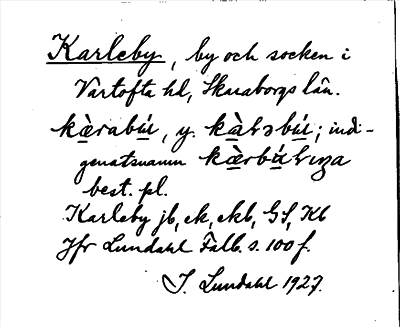 Karleby, by och socken i
Vartofta hd, Skaraborgs län.
kæ̀rabý, y. kàɽəbý; indi-
genatsnamn kæ̀rbýɽiŋa
best. pl.
Karleby jb, ek, ekb, GS, Kb
Jfr Lundahl Falb. s. 100 f.
I. Lundahl 1927.